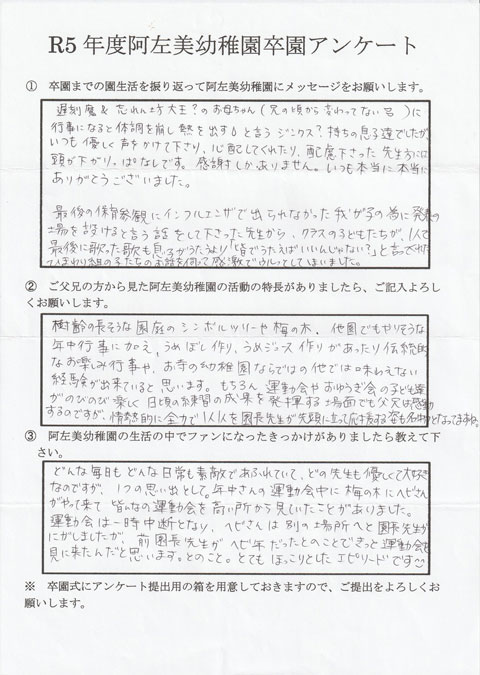 R5 年度阿左美幼稚園卒園アンケート
① 卒園までの園生活を振り返って阿左美幼稚園にメッセージをお願いします。
遅刻魔&忘れん坊大王?のお母ちゃん(兄の頃から変わってない 号)に
行事になると体調を崩し熱を出すと言うジンクス?持ちの息子達でしたが
いつも優しく声をかけて下さり、心配してくれたり、配慮下さった先生方には
頭が下がりっぱなしです。感謝しかありません。いつも本当に本当に
ありがとうございました。
最後の保育参観にインフルエンザで出られなかった我が子の為に発表の
場を設けると言う話をして下さった先生から、クラスの子どもたちが、1人で
最後に歌った歌も息子がうたうより「皆でうたえばいいんじゃない?」と言ってくれた
ひまわり組の子たちのお話を伺って感激でウルッとしてしまいました。
② ご父兄の方から見た阿左美幼稚園の活動の特長がありましたら、ご記入よろし
くお願いします。
樹齢の長そうな園庭のシンボルツリーや梅の木、他園でもやりそうな
年中行事に加え、うめぼし作り、うめジュース作りがあったり伝統的
なお楽しみ行事や、お寺の幼稚園ならではの他では味わえない
経験が出来ていると思います。もちろん運動会やおゆうぎ会の子ども達
がのびのび楽しく日頃の練習の成果を発揮する場面でも父兄は感動
するのですが、情熱的に全力で1人1人を園長先生が先頭に立って応援する姿も名物となってますね。
③ 阿左美幼稚園の生活の中でファンになったきっかけがありましたら教えて下
さい。
どんな毎日もどんな日常も素敵であふれていて、どの先生も優しくて大好き
なのですが、1つの思い出として。年中さんの運動会中に梅の木にヘビさん
がやって来て皆んなの運動会を高い所から見いていたことがありました。
運動会は一時中断となり、ヘビさんは別の場所へと園長先生が
にがしましたが、前園長先生がヘビ年だったとのことできっと運動会を
見に来たんだと思います。とのこと。とてもほっこりとしたエピソードです
※ 卒園式にアンケート提出用の箱を用意しておきますので、ご提出をよろしくお
願いします。